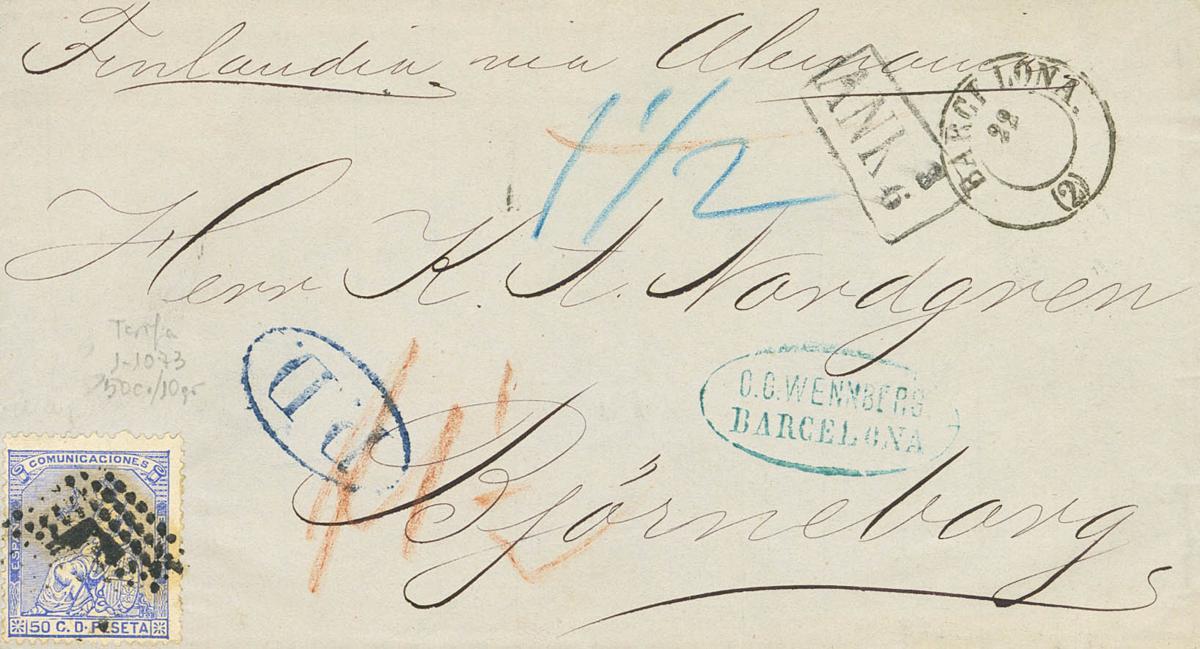 Finlandia via Alemania
BARCELONA.
22
(2)
ANK
6.
1 1/2
Herr K. A. Nordgren
Tarifa
1-1073
50cs/10gr
P.D.
C.C. WENNBERG
BARCELONA
Björneborg
COMUNICACIONES
ESPAÑA
50 C. D. PESETA